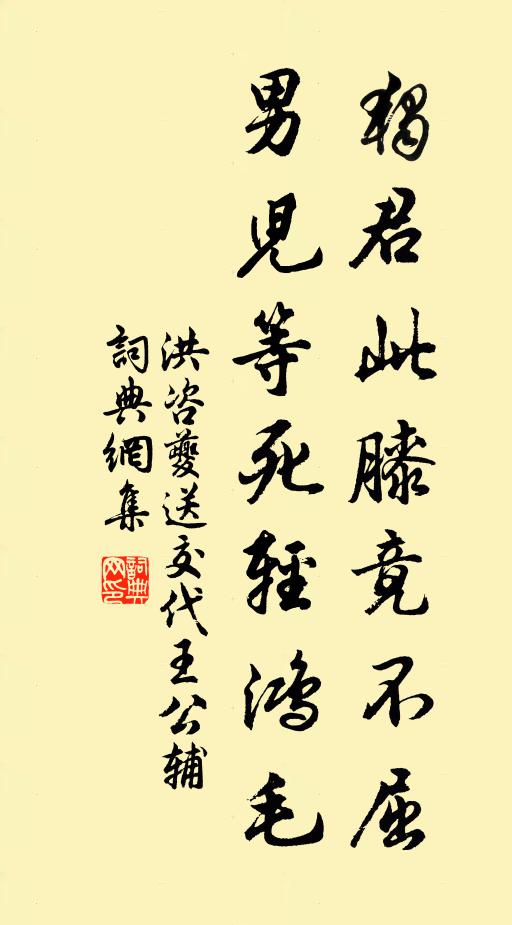 獨君此膝竟不屈
男兒等死輕鴻毛
洪咨夔送交代王公輔
詞典網集
詞典網印